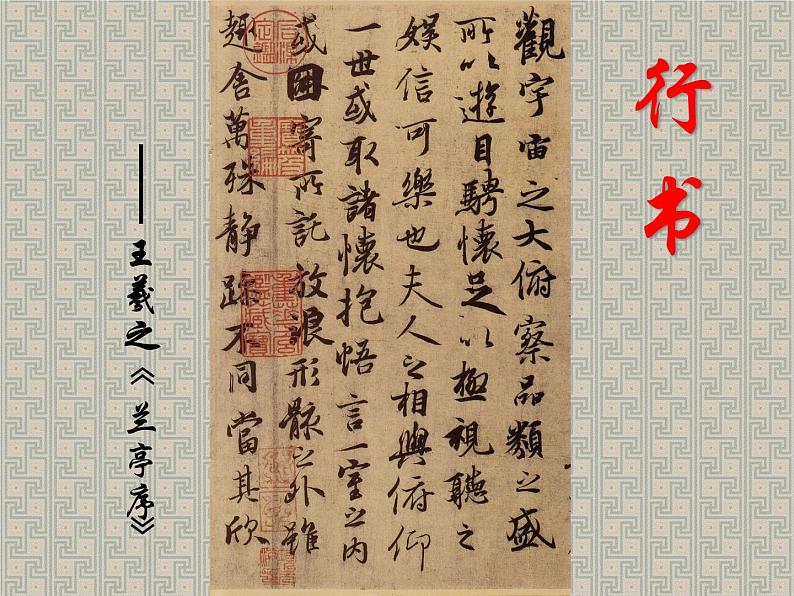 行书
觀宇宙之大俯察品類之盛
所以遊目騁懷足以極視聽之
娱信可樂也夫人之相與俯仰
一世或取諸懷抱悟言一室之内
或因寄所託放浪形骸之外雖
趣舍萬殊静躁不同當其欣
——王羲之《兰亭序》